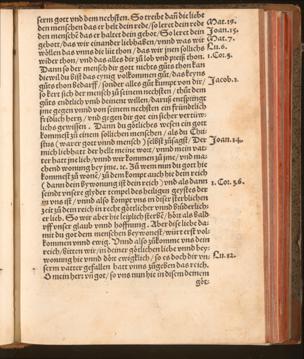 serm gott vnd dem nechsten. So treibe dañ die liebe
den menschen das er helt dein rede / so leret dein rede Mat.19.
den menschē das er haltet dein gebot. So leret dein Joan.15.
gebott / das wir einander liebhaben / vnnd was wir Mat.7.
wöllen das vnns die lüt thon / das wir jnen söliches Lu.6.
wider thon / vnd das alles dir zů lob vnd preiß thon. 1.Cor.5.
Dann so der mensch dir gott nichts gůts thon kan
diewyl du bist das eynig volkommen gůt / das keyns
gůts thon bedarff / sonder alles gůt kumpt von dir / Jacob.1.
so kert sich der mensch zů seinem nechsten / thůt dem
gůts endtlich vmb deinent willen / daruß entspringt
jme gegen vnnd von seinem nechsten ein fründtlich
fridlich hertz / vnd gegen dir got ein sicher vertrüw-
lichs gewissen. Dann du götliches wesen ein gott
kommest zů einem sollichen menschen / als du Chri-
stus (warer gott vnnd mensch) selbst zůsagst / Der Joan.14.
mich liebhatt der helt meine wort / vnnd mein vat-
ter hatt jne lieb / vnnd wir kommen zů jme / vnd ma-
chend wonung bey jme. ꝛc. Jů wem nun du gott hie
kommest zů wonē / zů dem kompt auch hie dein reich
(dann dein Bywonung ist dein reich) vnd als dann 1. Cor. 3.6.
seindt vnser glyder tempel des heiligen geystes der
in vns ist / vnnd also kompt vns in diser sterblichen
zeit zů dein reich in recht götlicher vnnd
er lieb. So wir aber hie leiplich sterbē / hört als bald
vff vnser glaub vnnd hoffnung. Aber dise liebe da-
mit du got dem menschen beywonest / würt erst vol-
kommen vnnd ewig. Vnnd also zůkomme vns dein
reich / bitten wir / in deiner götlichen liebe vnnd bey-
wonung hie vnnd dört ewigklich / so es doch dir vn- Lu.12.
serm vatter gefallen hatt vnns zůgeben das reich.
O mein herr vñ got / so vns nun hie in disem deinem
göt: